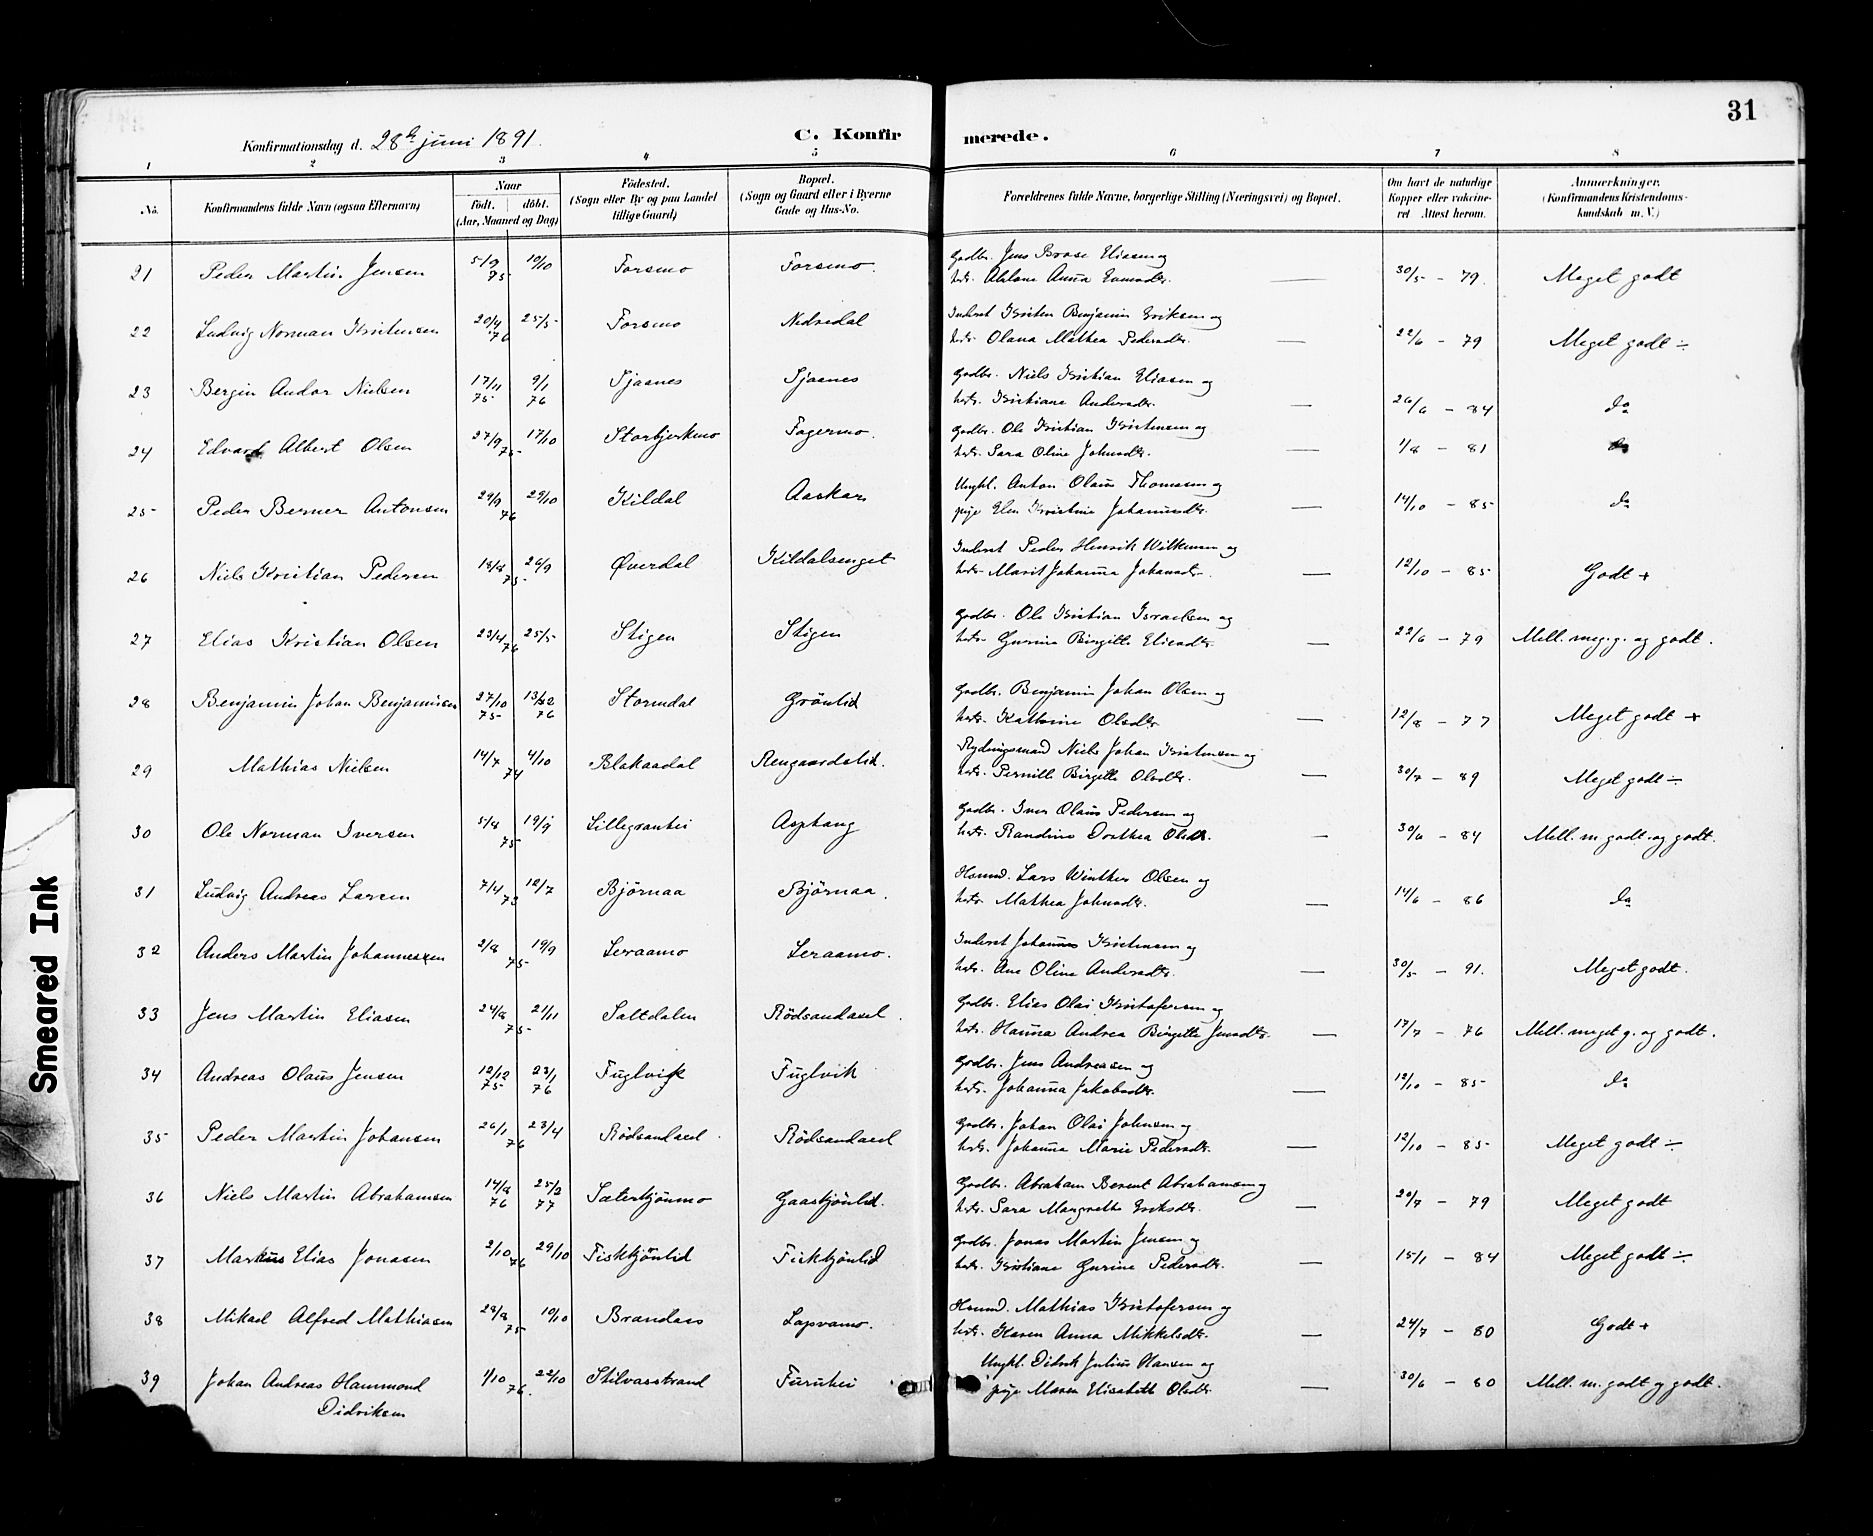 31
Konfirmationsdag d. 28de juni 1891. C. Konfir merede.
1 2 3 4 5 6 7 8
No. Konfirmandens fulde Navn (ogsaa Efternavn) Naar Födt. döbt. (Aar, Maaned og Dag) Födested. (Sogn eller By og paa Landet tillige Gaard) Bopæl. (Sogn og Gaard eller i Byerne Gade og Hus-No. Forældrenes fulde Navne, borgerlige Stilling (Næringsvei) og Bopæl. Om havt de naturlige Kopper eller vaccineret Attest herom. Anmærkninger. (Konfirmandens Kristendomskundskab m. V.)
21 Peder Martin Jensen 5/9 75 10/10 Forsmo Forsmo. Gadbr. Jens Brose Eliasen og
hstr. Abelone Anna — 30/5 - 79. Meget godt
22 Ludvig Norman Kristensen 20/4 76 25/5 Forsmo Nedredal Inderst Kristen Benjamin Eriksen og
hstr. Olana Mathea Pedersdtr. — 22/6 - 79 Meget godt ÷
23 Bergin Andor Nielsen 17/11 75 9/1 76 Tjaanes Tjaanes Gadbr. Niels Kristian Eliasen og
hstr. Kristiane Andersdtr. — 26/6 - 84 do
24 Edvard Albert Olsen 27/9 75 17/10 Storbjerkmo Fagermo. Gadbr. Ole Kristian Kristensen og
hstr. Sara Oline Johnsdtr. — 1/8 - 81 do
25 Peder Berner Antonsen 29/9 76 29/10 Kildal Aaskar Ungkl. Anton Olaus Thomassen og
pige Elen Kristine Johannesdtr. — 14/10 - 85 do
26 Niels Kristian Pedersen 18/8 75 26/9 Øverdal Kildalsenget Inderst Peder Henrik Wilkensen og
hstr. Marit Johanna Johansdtr. — 12/10 - 85 Godt +
27 Elias Kristian Olsen 23/4 76 25/5 Stigen Stigen Gadbr. Ole Kristian Israelsen og
hstr. Gurine Birgitte Eliasdtr. — 22/6 - 79 Mell. meg. g. og godt.
28 Benjamin Johan Benjaminsen 27/10 75 13/2 76 Stormdal Grönlid Gadbr. Benjamin Johan Olsen og
hstr. Kathrine Olsdtr. — 12/8 - 77 Meget godt +
29 Mathias Nielsen 14/7 74 4/10 Blakaadal Rengaardslid. Rydningsmand Niels Johan Kristensen og
hstr. Pernille Birgitte Olsdtr. — 30/7 - 89 Meget godt ÷
30 Ole Norman Iversen 5/8 75 19/9 Lillegranhei Asphaug Gadbr. Iver Olaus Pedersen og
hstr. Randine Dorthea Olsdtr. — 30/6 - 84 Mell. m. godt. og godt.
31 Ludvig Andreas Larsen 7/4 75 12/7 Björnaa Björnaa. Husmd. Lars Winther Olsen og
hstr. Mathea Johnsdtr. — 14/6 - 86 do
32 Anders Martin Johannessen 2/8 75 19/9 Leraamo Leraamo. Inderst Johannes Kristensen og
hstr. Ane Oline Andersdtr. — 30/5 - 91. Meget godt.
33 Jens Martin Eliasen 24/8 75 21/11 Saltdalen Rödsandaxel. Gadbr. Elias Olai Kristofersen og
hstr. Hanna Andrea Birgitte Jensdtr. — 17/7 - 76 Mell. meget g. og godt.
34 Andreas Olaus Jensen 12/12 75 23/1 76 Fuglvik Fuglvik Gadbr. Jens Andreasen og
hstr. Johanna Jakobsdtr. — 12/10 - 85 do
35 Peder Martin Johansen 26/1 76 23/4 Rödsandaxel. Rödsandaxel Gadbr. Johan Olai Johnsen og
hstr. Johanna Marie Pedersdtr. — 12/10 - 85 Meget godt ÷
36 Niels Martin Abrahamsen 14/8 76 25/2 77 Sæterkjönmo Gaaskjönlid. Gadbr. Abraham Berent Abrahamsen og
hstr. Sara Margrethe Eriksdtr. — 20/7 - 79 Meget godt
37 Markus Elias Jonasen 2/10 76 29/10 Fisktjönlid Fisktjönlid Gadbr. Jonas Martin Jensen og
hstr. Kristiane Gurine Pedersdtr. — 15/1 - 84 Meget godt ÷
38 Mikael Alfred Mathiasen 28/8 75 10/10 Brandaas Lapvamo. Husmd. Mathias Kristofersen og
hstr. Karen Anna Mikkelsdtr. — 24/7 - 80 Godt +
39 Johan Andreas Hammond Didriksen 1/10 76. 22/10 Stilvasstrand Furuhei Ungkl. Didrik Julius Hansen og
pige Maren Elisabeth Olsdtr. — 30/6 - 80 Mell. m. godt og godt.
Smeared Ink